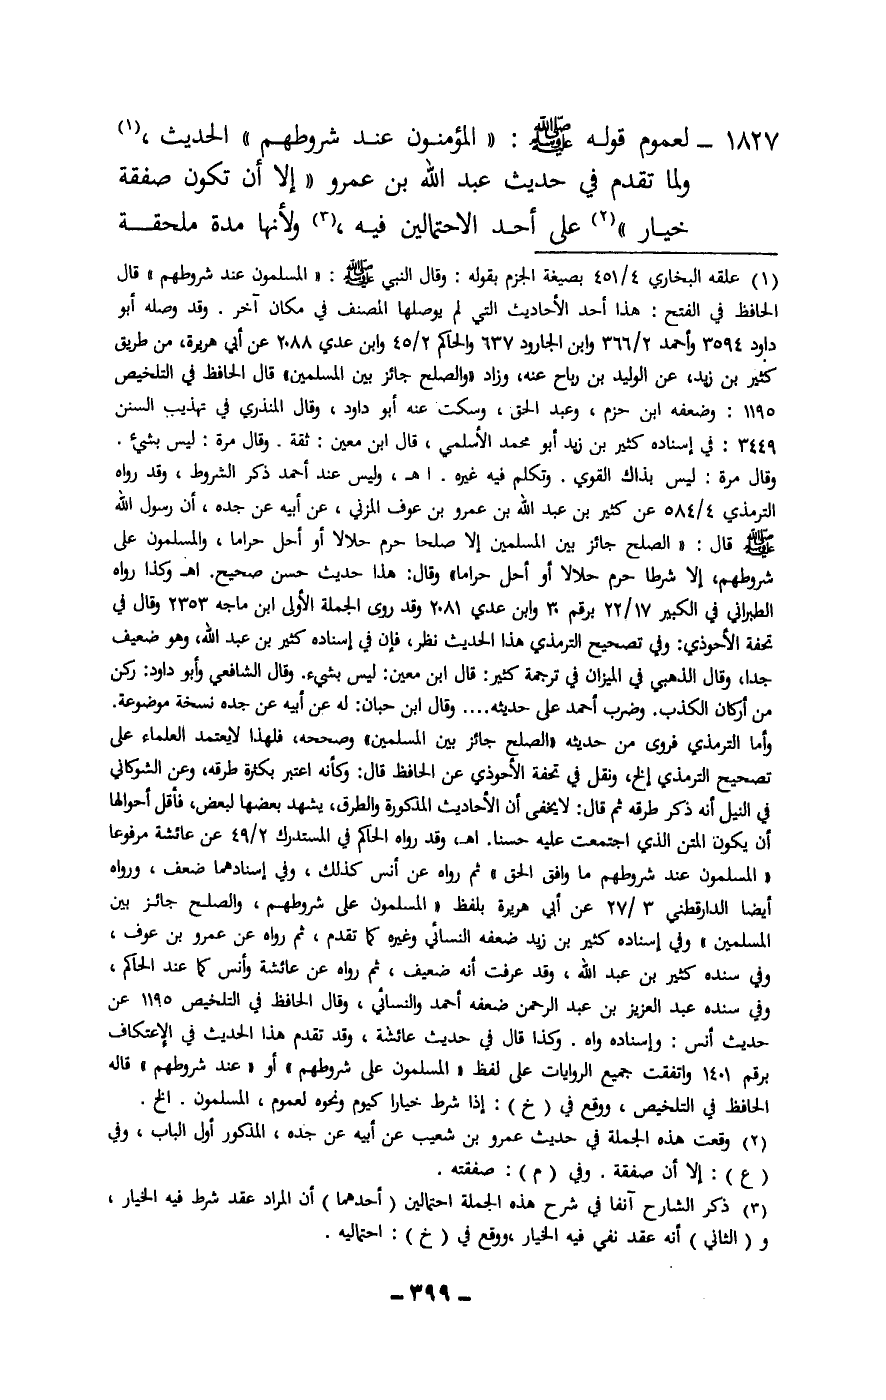 ١٨٢٧ ــ لعموم قوله ﷺ : « المؤمنون عند شروطهم » الحديث ،(١)
ولما تقدم في حديث عبد الله بن عمرو « إلا أن تكون صفقة
خيار »(٢) على أحد الاحتمالين فيه ،(٣) ولأنها مدة ملحقة
(١) علقه البخاري ٤٥١/٤ بصيغة الجزم بقوله : وقال النبي ﷺ : « المسلمون عند شروطهم » قال
الحافظ في الفتح : هذا أحد الأحاديث التي لم يوصلها المصنف في مكان آخر . وقد وصله أبو
داود ٣٥٩٤ وأحمد ٣٦٦/٢ وابن الجارود ٦٣٧ والحاكم ٤٥/٢ وابن عدي ٢٠٨٨ عن أبي هريرة، من طريق
كثير بن زيد، عن الوليد بن رباح عنه، وزاد «والصلح جائز بين المسلمين» قال الحافظ في التلخيص
١١٩٥ : وضعفه ابن حزم ، وعبد الحق ، وسكت عنه أبو داود ، وقال المنذري في تهذيب السنن
٣٤٤٩ : في إسناده كثير بن زيد أبو محمد الأسلمي ، قال ابن معين : ثقة . وقال مرة : ليس بشيء .
وقال مرة : ليس بذاك القوي . وتكلم فيه غيره . ا هـ ، وليس عند أحمد ذكر الشروط ، وقد رواه
الترمذي ٥٨٤/٤ عن كثير بن عبد الله بن عمرو بن عوف المزني ، عن أبيه عن جده ، أن رسول الله
ﷺ قال : « الصلح جائز بين المسلمين إلا صلحا حرم حلالا أو أحل حراما ، والمسلمون على
شروطهم، إلا شرطا حرم حلالا أو أحل حراما» وقال: هذا حديث حسن صحيح. اهـ وكذا رواه
الطبراني في الكبير ٢٢/١٧ برقم ٣٠ وابن عدي ٢٠٨١ وقد روى الجملة الأولى ابن ماجه ٢٣٥٣ وقال في
تحفة الأحوذي: وفي تصحيح الترمذي هذا الحديث نظر، فإن في إسناده كثير بن عبد الله، وهو ضعيف
جدا، وقال الذهبي في الميزان في ترجمة كثير: قال ابن معين: ليس بشيء. وقال الشافعي وأبو داود: ركن
من أركان الكذب. وضرب أحمد على حديثه.... وقال ابن حبان: له عن أبيه عن جده نسخة موضوعة.
وأما الترمذي فروى من حديثه «الصلح جائز بين المسلمين» وصححه، فلهذا لايعتمد العلماء على
تصحيح الترمذي إلخ، ونقل في تحفة الأحوذي عن الحافظ قال: وكأنه اعتبر بكثرة طرقه، وعن الشوكاني
في النيل أنه ذكر طرقه ثم قال: لايخفى أن الأحاديث المذكورة والطرق، يشهد بعضها لبعض، فأقل أحوالها
أن يكون المتن الذي اجتمعت عليه حسنا. اهـ، وقد رواه الحاكم في المستدرك ٤٩/٢ عن عائشة مرفوعا
« المسلمون عند شروطهم ما وافق الحق » ثم رواه عن أنس كذلك ، وفي إسنادهما ضعف ، ورواه
أيضا الدارقطني ٣ /٢٧ عن أبي هريرة بلفظ « المسلمون على شروطهم ، والصلح جائز بين
المسلمين » وفي إسناده كثير بن زيد ضعفه النسائي وغيره كما تقدم ، ثم رواه عن عمرو بن عوف ،
وفي سنده كثير بن عبد الله ، وقد عرفت أنه ضعيف ، ثم رواه عن عائشة وأنس كما عند الحاكم ،
وفي سنده عبد العزيز بن عبد الرحمن ضعفه أحمد والنسائي ، وقال الحافظ في التلخيص ١١٩٥ عن
حديث أنس : وإسناده واه . وكذا قال في حديث عائشة ، وقد تقدم هذا الحديث في الإعتكاف
برقم ١٤٠١ واتفقت جميع الروايات على لفظ « المسلمون على شروطهم » أو « عند شروطهم » قاله
الحافظ في التلخيص ، ووقع في ( خ ) : إذا شرط خيارا كيوم ونحوه لعموم ، المسلمون . الخ .
(٢) وقعت هذه الجملة في حديث عمرو بن شعيب عن أبيه عن جده ، المذكور أول الباب ، وفي
( ع ) : إلا أن صفقة . وفي ( م ) : صفقته .
(٣) ذكر الشارح آنفا في شرح هذه الجملة احتمالين ( أحدهما ) أن المراد عقد شرط فيه الخيار ،
و ( الثاني ) أنه عقد نفي فيه الخيار ،ووقع في ( خ ) : احتماليه .
ــ ٣٩٩ ــ